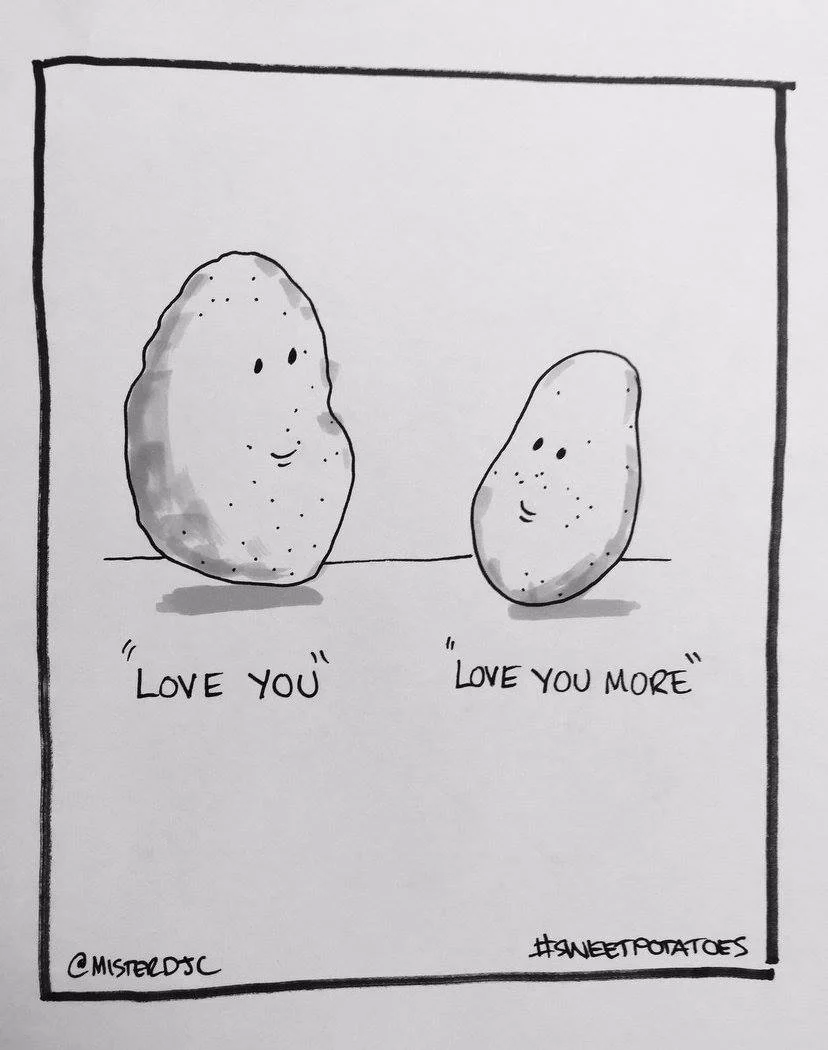 "LOVE YOU"
"LOVE YOU MORE"
@MISTERDJC
#SWEETPOTATOES